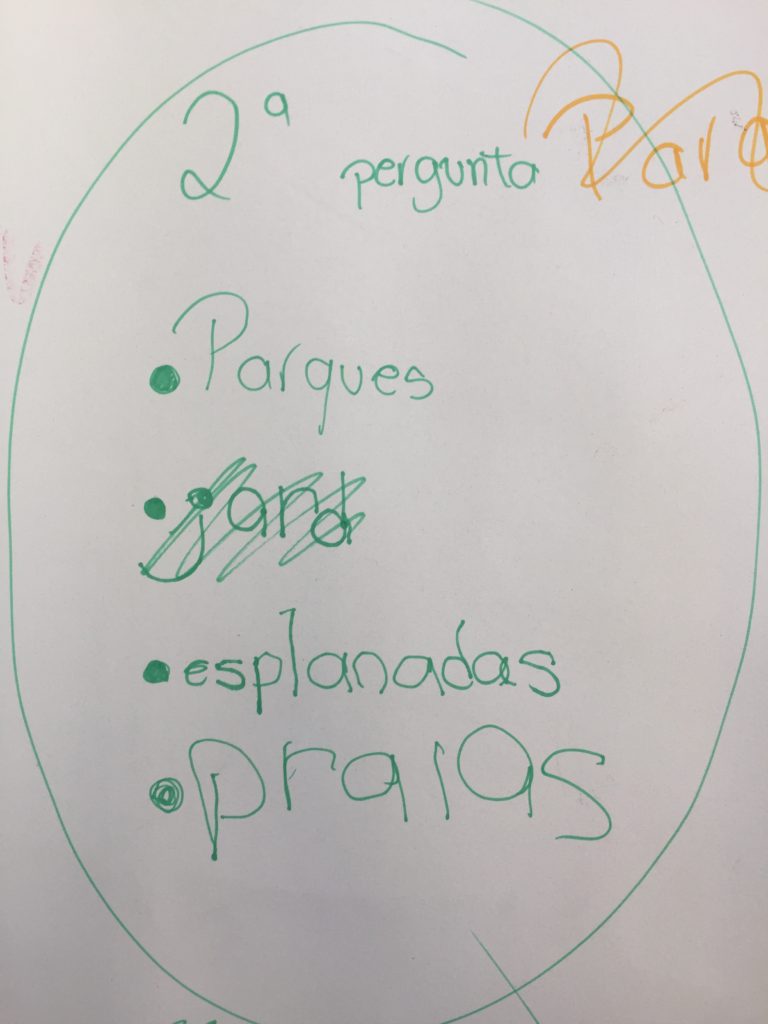 2ª pergunta
• Parques
• esplanadas
• praias